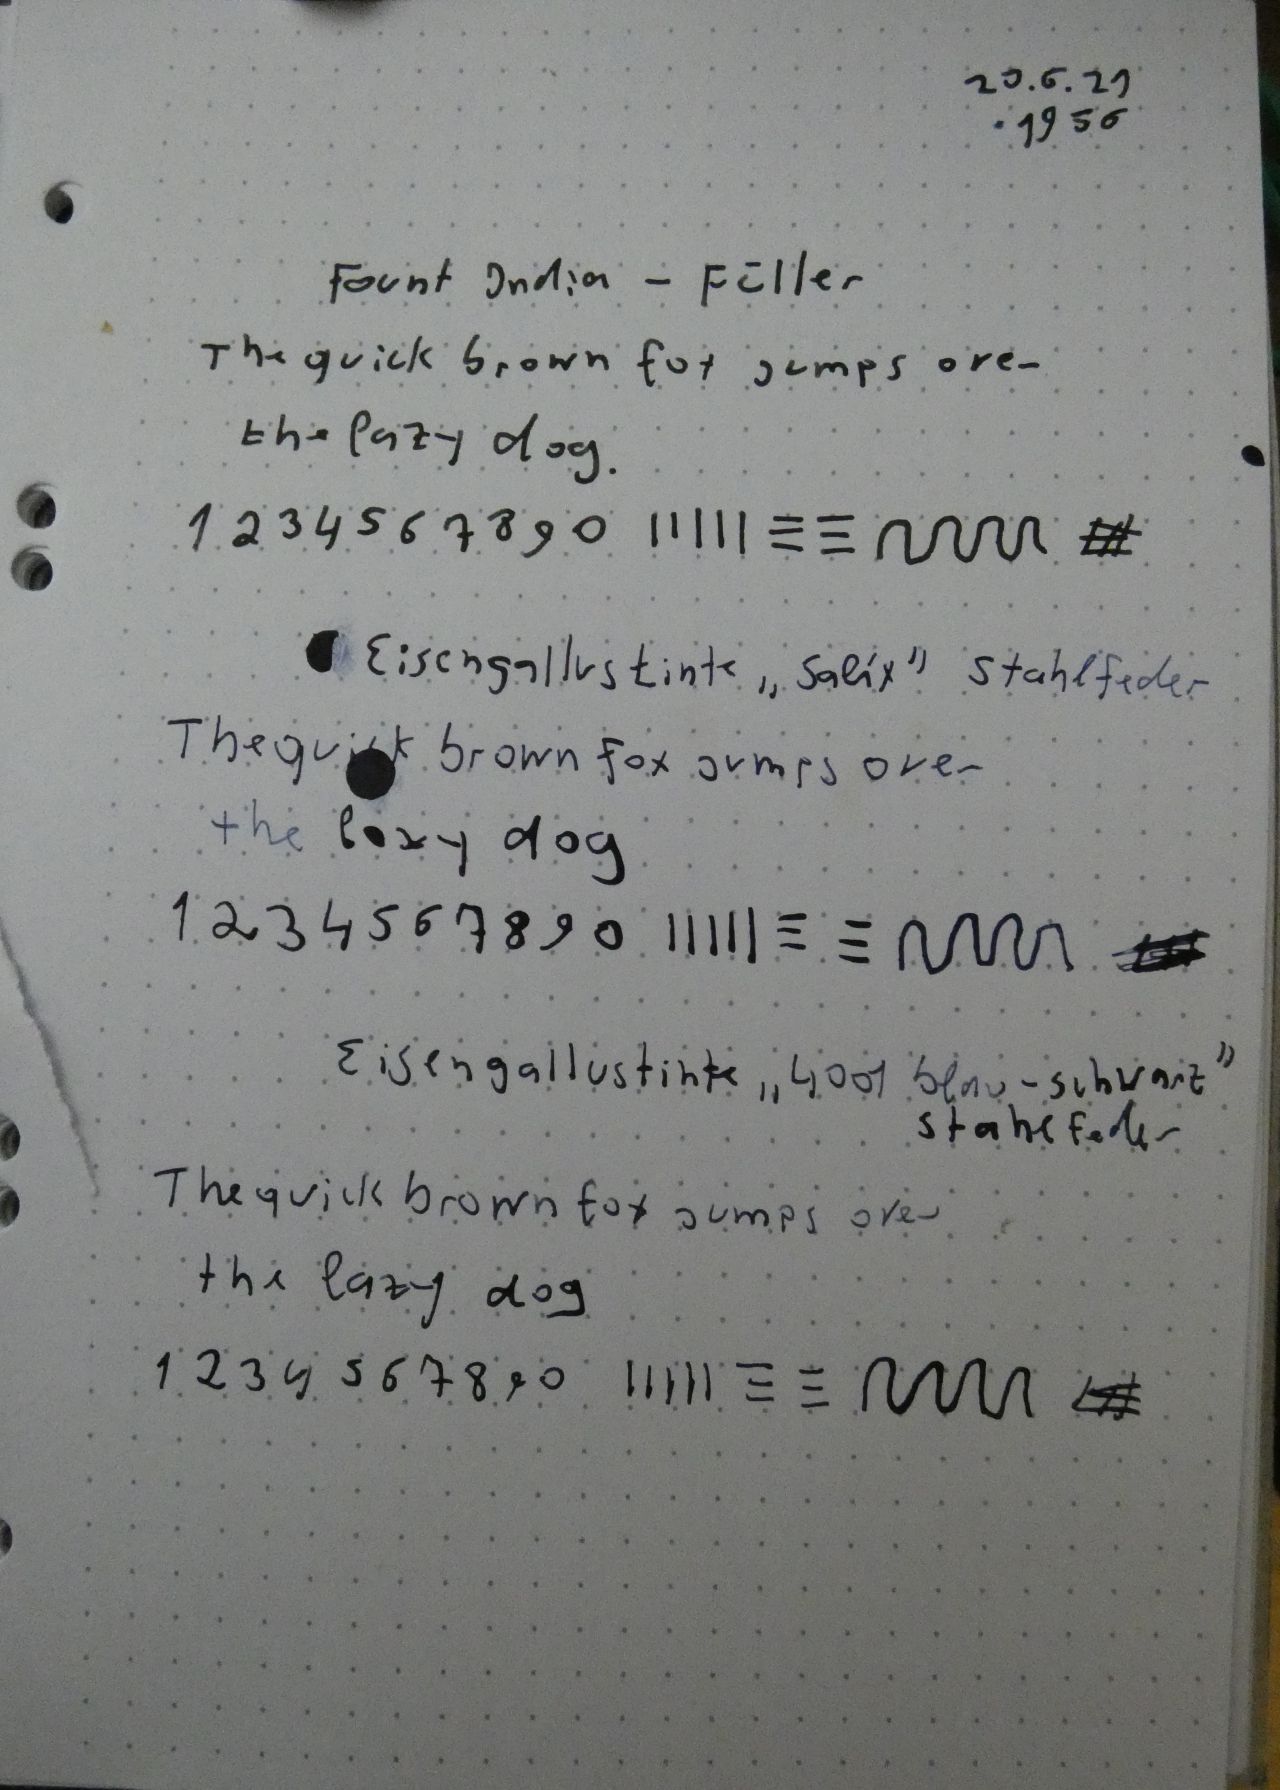 20.6.21
1956
Fount India - Füller
The quick brown fox jumps over
the lazy dog.
1 2 3 4 5 6 7 8 9 0
Eisengallustinte „Salix" Stahlfeder
The quick brown fox jumps over
the lazy dog
1 2 3 4 5 6 7 8 9 0
Eisengallustinte „4001 blau-schwarz"
Stahlfeder
The quick brown fox jumps over
the lazy dog
1 2 3 4 5 6 7 8 9 0